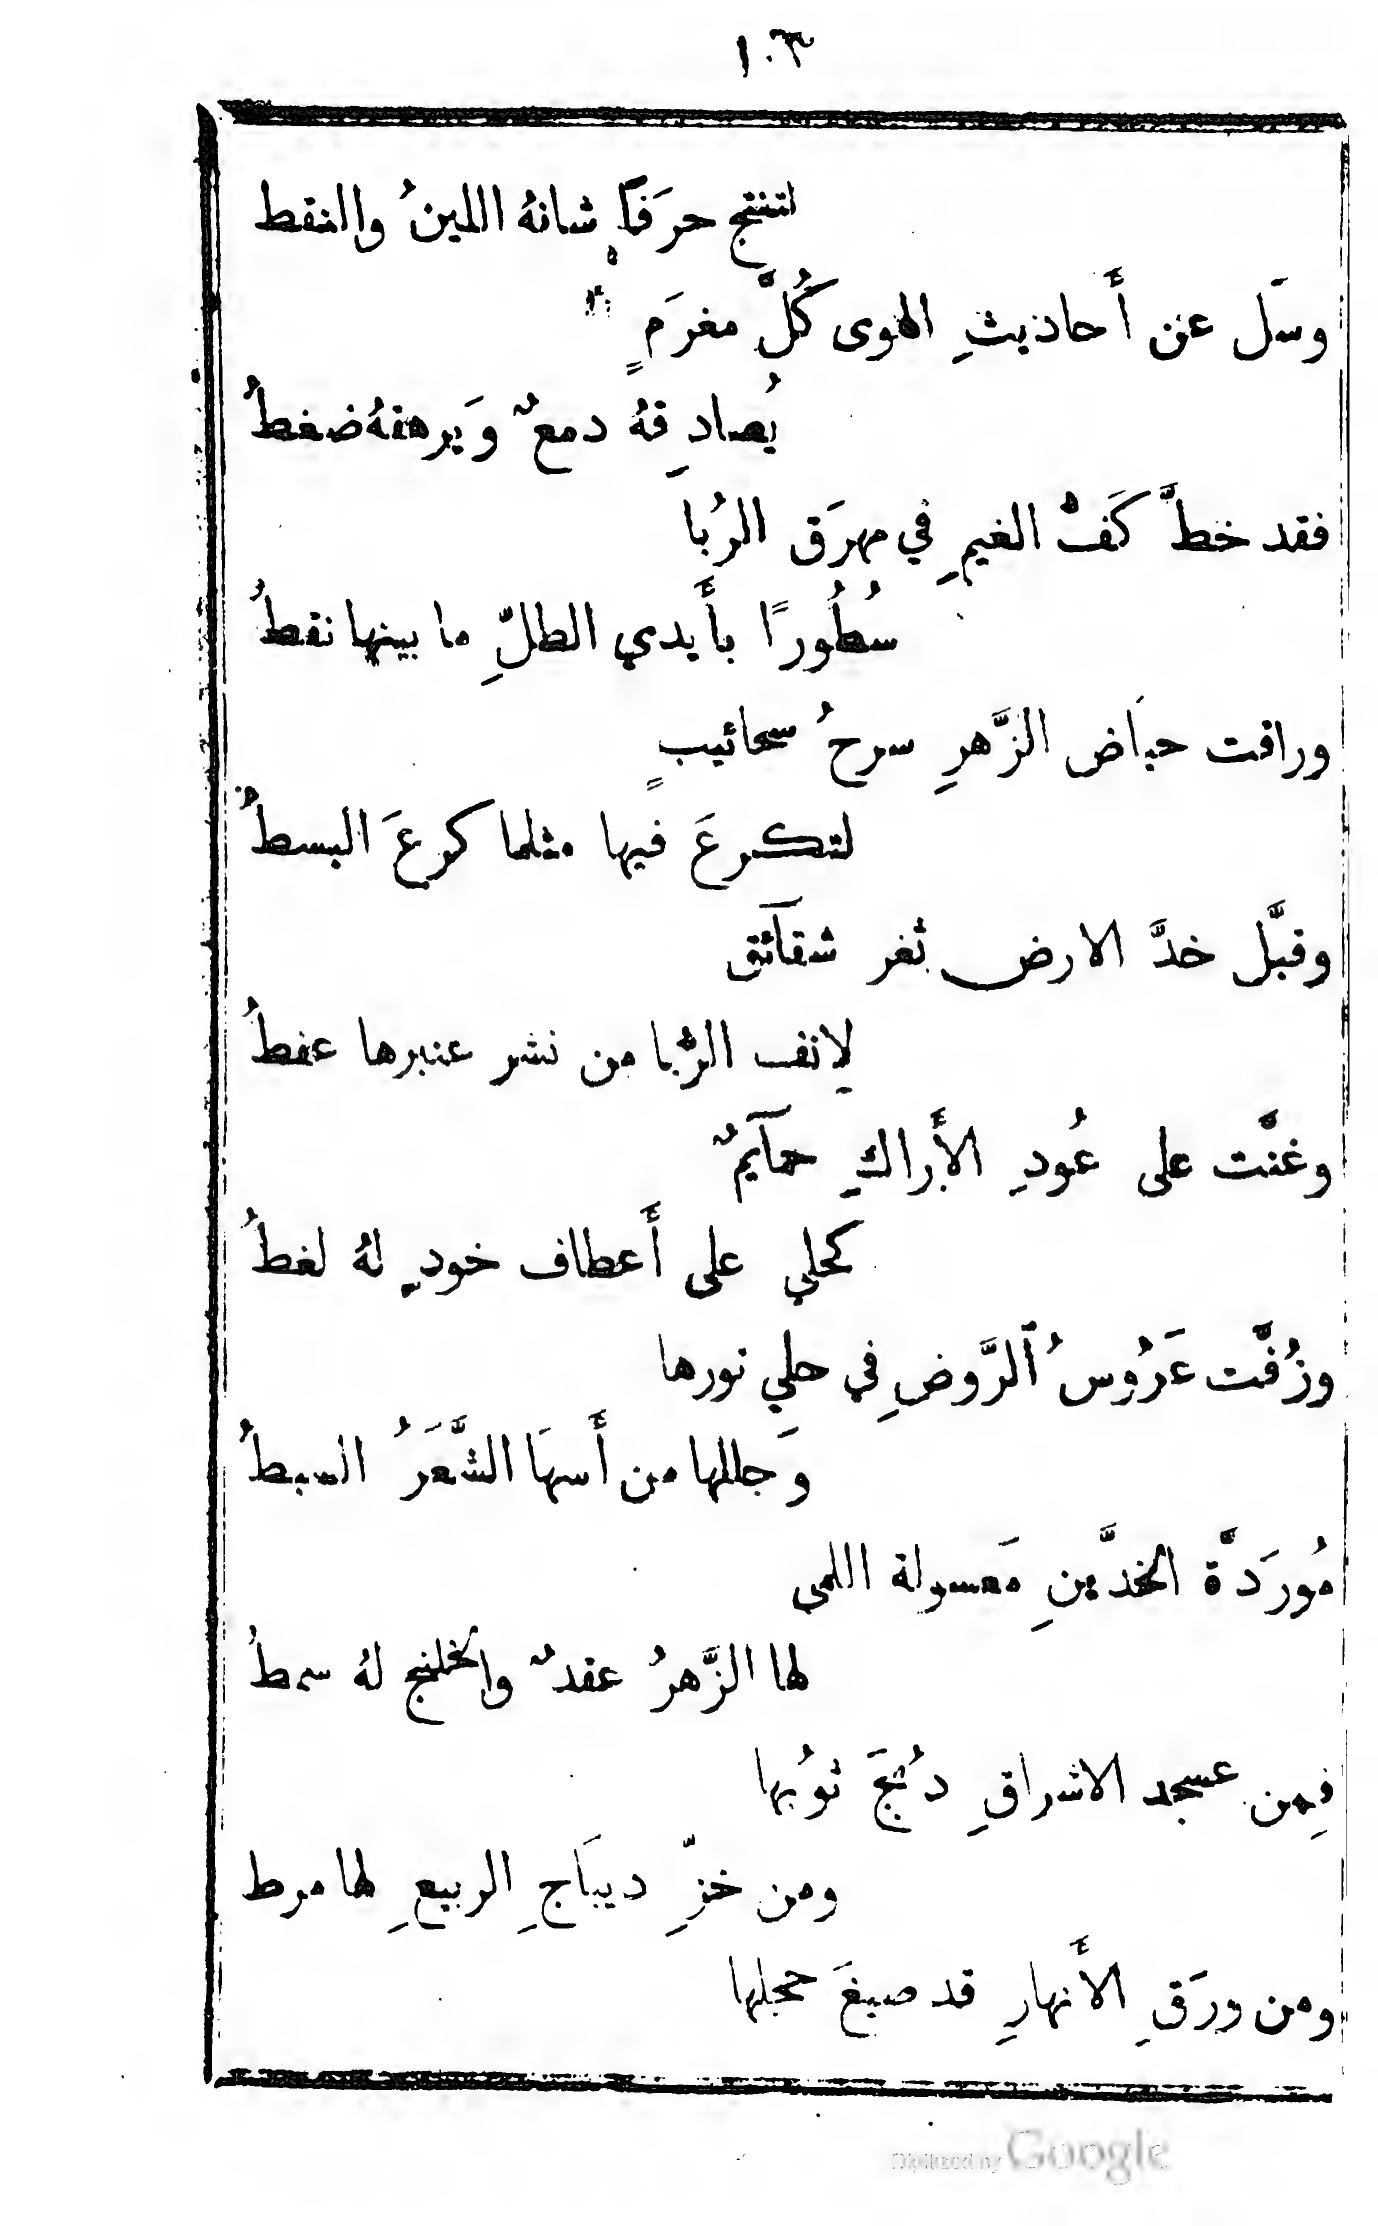 ١٠٣
لتنتج حرَفاً شانهُ اللينُ والنقط
وسَل عن أَحاديثِ الهوى كُلَّ مغرَمٍ
يُصادِفهُ دمعٌ وَيرهقهُ ضغطُ
فقد خطَّ كَفُّ الغيمِ في مهرَق الرُبا
سُطُورًا بأَيدي الطلِّ ما بينها نقطُ
وراقت حيَاض الزَّهرِ سرحُ سحائيبٍ
لتكرعَ فيها مثلما كرعَ البسطُ
وقبَّل خدَّ الارض ثغر شقآئق
لِانف الرُّبا من نشر عنبرها عفطُ
وغنَّت على عُودِ الأَراكِ حمآيمٌ
كحلي على أَعطاف خودٍ لهُ لغطُ
وزُفَّت عَرُوسُ ٱلرَّوضِ في حلي نورها
وَجللها من أَسهَا الشَّعَرُ السبطُ
مُورَدَّة الخدَّينِ مَعسولة اللمى
لها الزَّهرُ عقدٌ والخلنج لهُ سمطُ
فمِن عسجد الاشراقِ دُبّجَ ثوُبها
ومن خزِّ ديبَاجِ الربيعِ لها مرط
ومن ورَقِ الأَنهارِ قد صيغَ حجلها
Digitized by Google